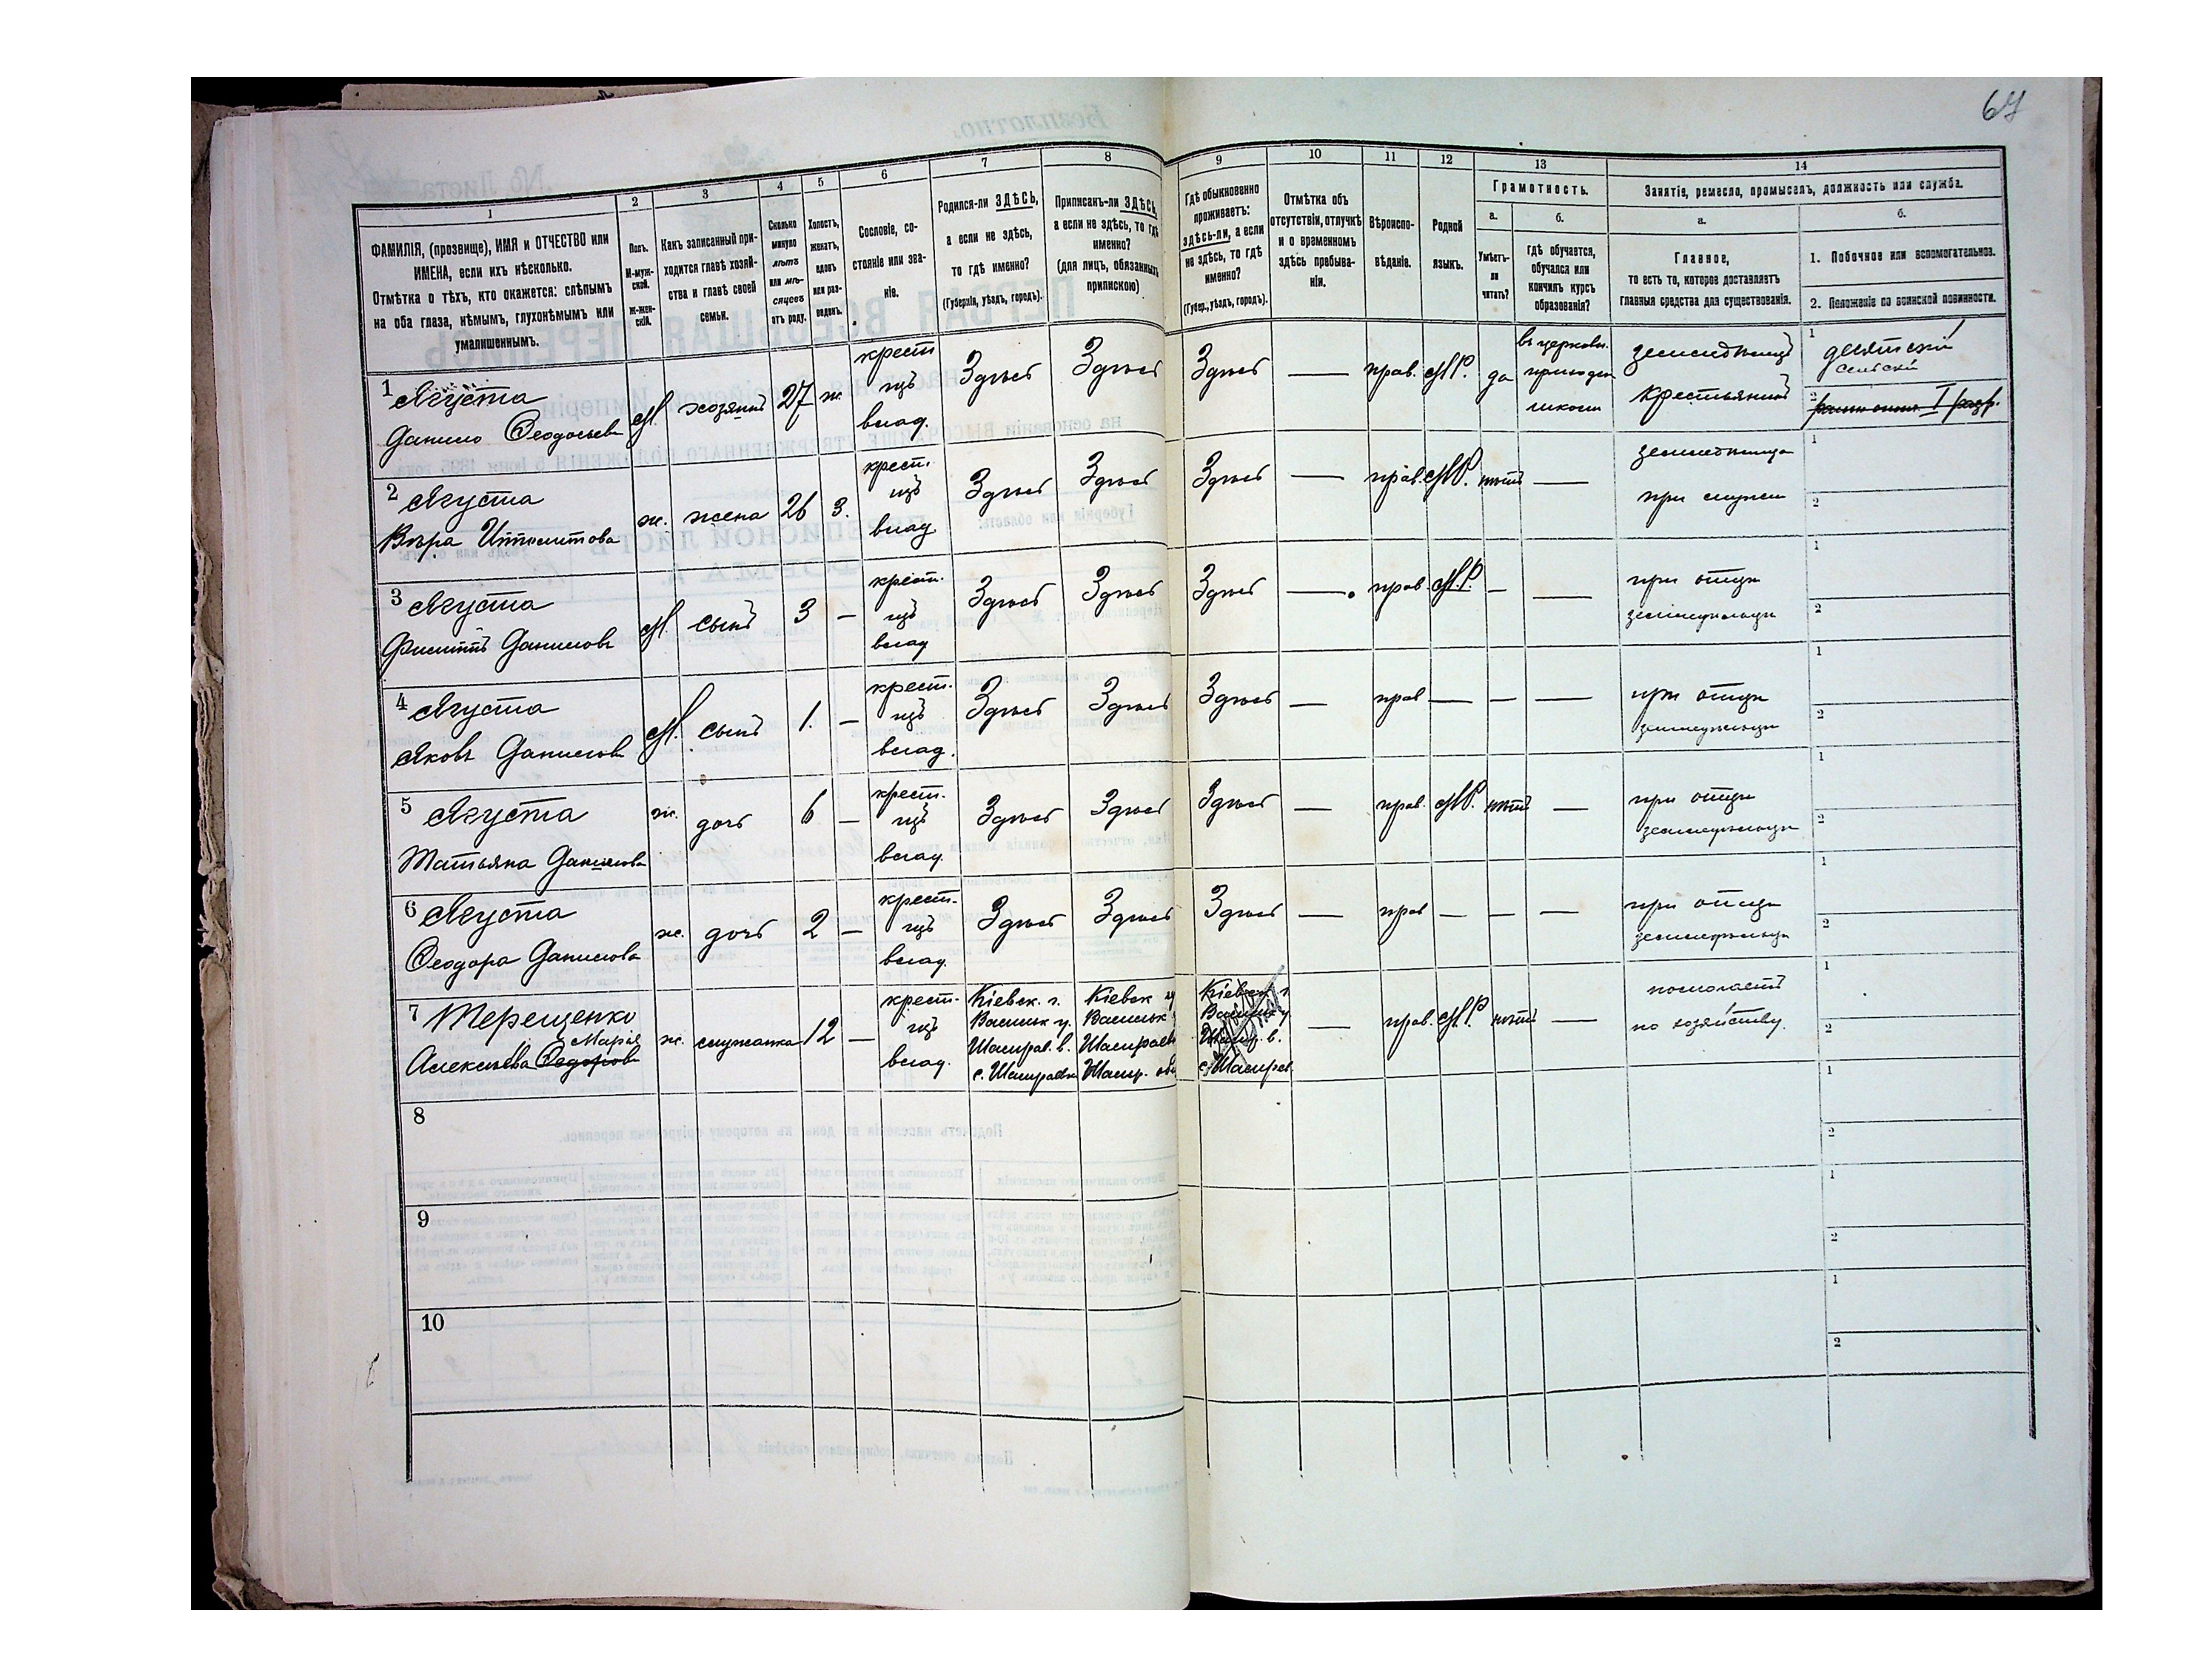 67
1 2 3 4 5 6 7 8 9 10 11 12 13 14
ФАМИЛІЯ, (прозвище), ИМЯ и ОТЧЕСТВО или
ИМЕНА, если ихъ нѣсколько.
Отмѣтка о тѣхъ, кто окажется: слѣпымъ
на оба глаза, нѣмымъ, глухонѣмымъ или
умалишеннымъ.
Полъ.
М-муж-
ской.
Ж-жен-
скій.
Какъ записанный при-
ходится главѣ хозяй-
ства и главѣ своей
семьи.
Сколько
минуло
лѣтъ
или мѣ-
сяцевъ
отъ роду.
Холостъ,
женатъ,
вдовъ
или раз-
веденъ.
Сословіе, со-
стояніе или зва-
ніе.
Родился-ли ЗДѢСЬ,
а если не здѣсь,
то гдѣ именно?
(Губернія, уѣздъ, городъ).
Приписанъ-ли ЗДѢСЬ,
а если не здѣсь, то гдѣ
именно?
(для лицъ, обязанныхъ
припискою)
Гдѣ обыкновенно
проживаетъ:
здѣсь-ли, а если
не здѣсь, то гдѣ
именно?
(Губер., уѣздъ, городъ).
Отмѣтка объ
отсутствіи, отлучкѣ
и о временномъ
здѣсь пребыва-
ніи.
Вѣроиспо-
вѣданіе.
Родной
языкъ.
Грамотность.
а. б.
Умѣетъ-
ли
читать?
гдѣ обучается,
обучался или
кончилъ курсъ
образованія?
Занятія, ремесло, промыселъ, должность или служба.
а. б.
Главное,
то есть то, которое доставляетъ
главныя средства для существованія.
1. Побочное или вспомогательное.
2. Положеніе по воинской повинности.
1 Ягуста
Данило Ѳеодосьевъ
М. хозяинъ 27 ж.
крест
изъ
влад.
Здѣсь Здѣсь Здѣсь — прав. М.Р. да
въ церковн.
приходск
школѣ
земледѣлецъ
крестьянинъ
1 десятскій
сельскій
2 I разр.
2 Ягуста
Вѣра Ипполитова
ж. жена 26 З.
крест.
изъ
влад.
Здѣсь Здѣсь Здѣсь — прав. М.Р. нѣтъ —
земледѣлица
при мужѣ
1
2
3 Ягуста
Филиппъ Даниловъ
М. сынъ 3 —
крест.
изъ
влад
Здѣсь Здѣсь Здѣсь — прав. М.Р. — —
при отцѣ
земледѣльцѣ
1
2
4 Ягуста
Яковъ Даниловъ
М. сынъ 1. —
крест.
изъ
влад.
Здѣсь Здѣсь Здѣсь — прав — — —
при отцѣ
земледѣльцѣ
1
2
5 Ягуста
Татьяна Данилова
ж. дочь 6 —
крест.
изъ
влад.
Здѣсь Здѣсь Здѣсь — прав. М.Р. нѣтъ —
при отцѣ
земледѣльцѣ
1
2
6 Ягуста
Ѳеодора Данилова
ж. дочь 2 —
крест.
изъ
влад.
Здѣсь Здѣсь Здѣсь — прав — — —
при отцѣ
земледѣльцѣ
1
2
7 Терещенко
Марія
Алексѣева Ѳедорова
ж. служанка 12 —
крест.
изъ
влад.
Кіевск. г.
Васильк у.
Шамрав. в.
с. Шамраевки
Кіевск
Васильк
Шамраев
Шамр. общ
Кіевск г
Васильк у
Шамр. в.
с. Шамраев
— прав. М.Р. нѣтъ —
помогаетъ
по хозяйству.
1
2
8
1
2
9
1
2
10
1
2